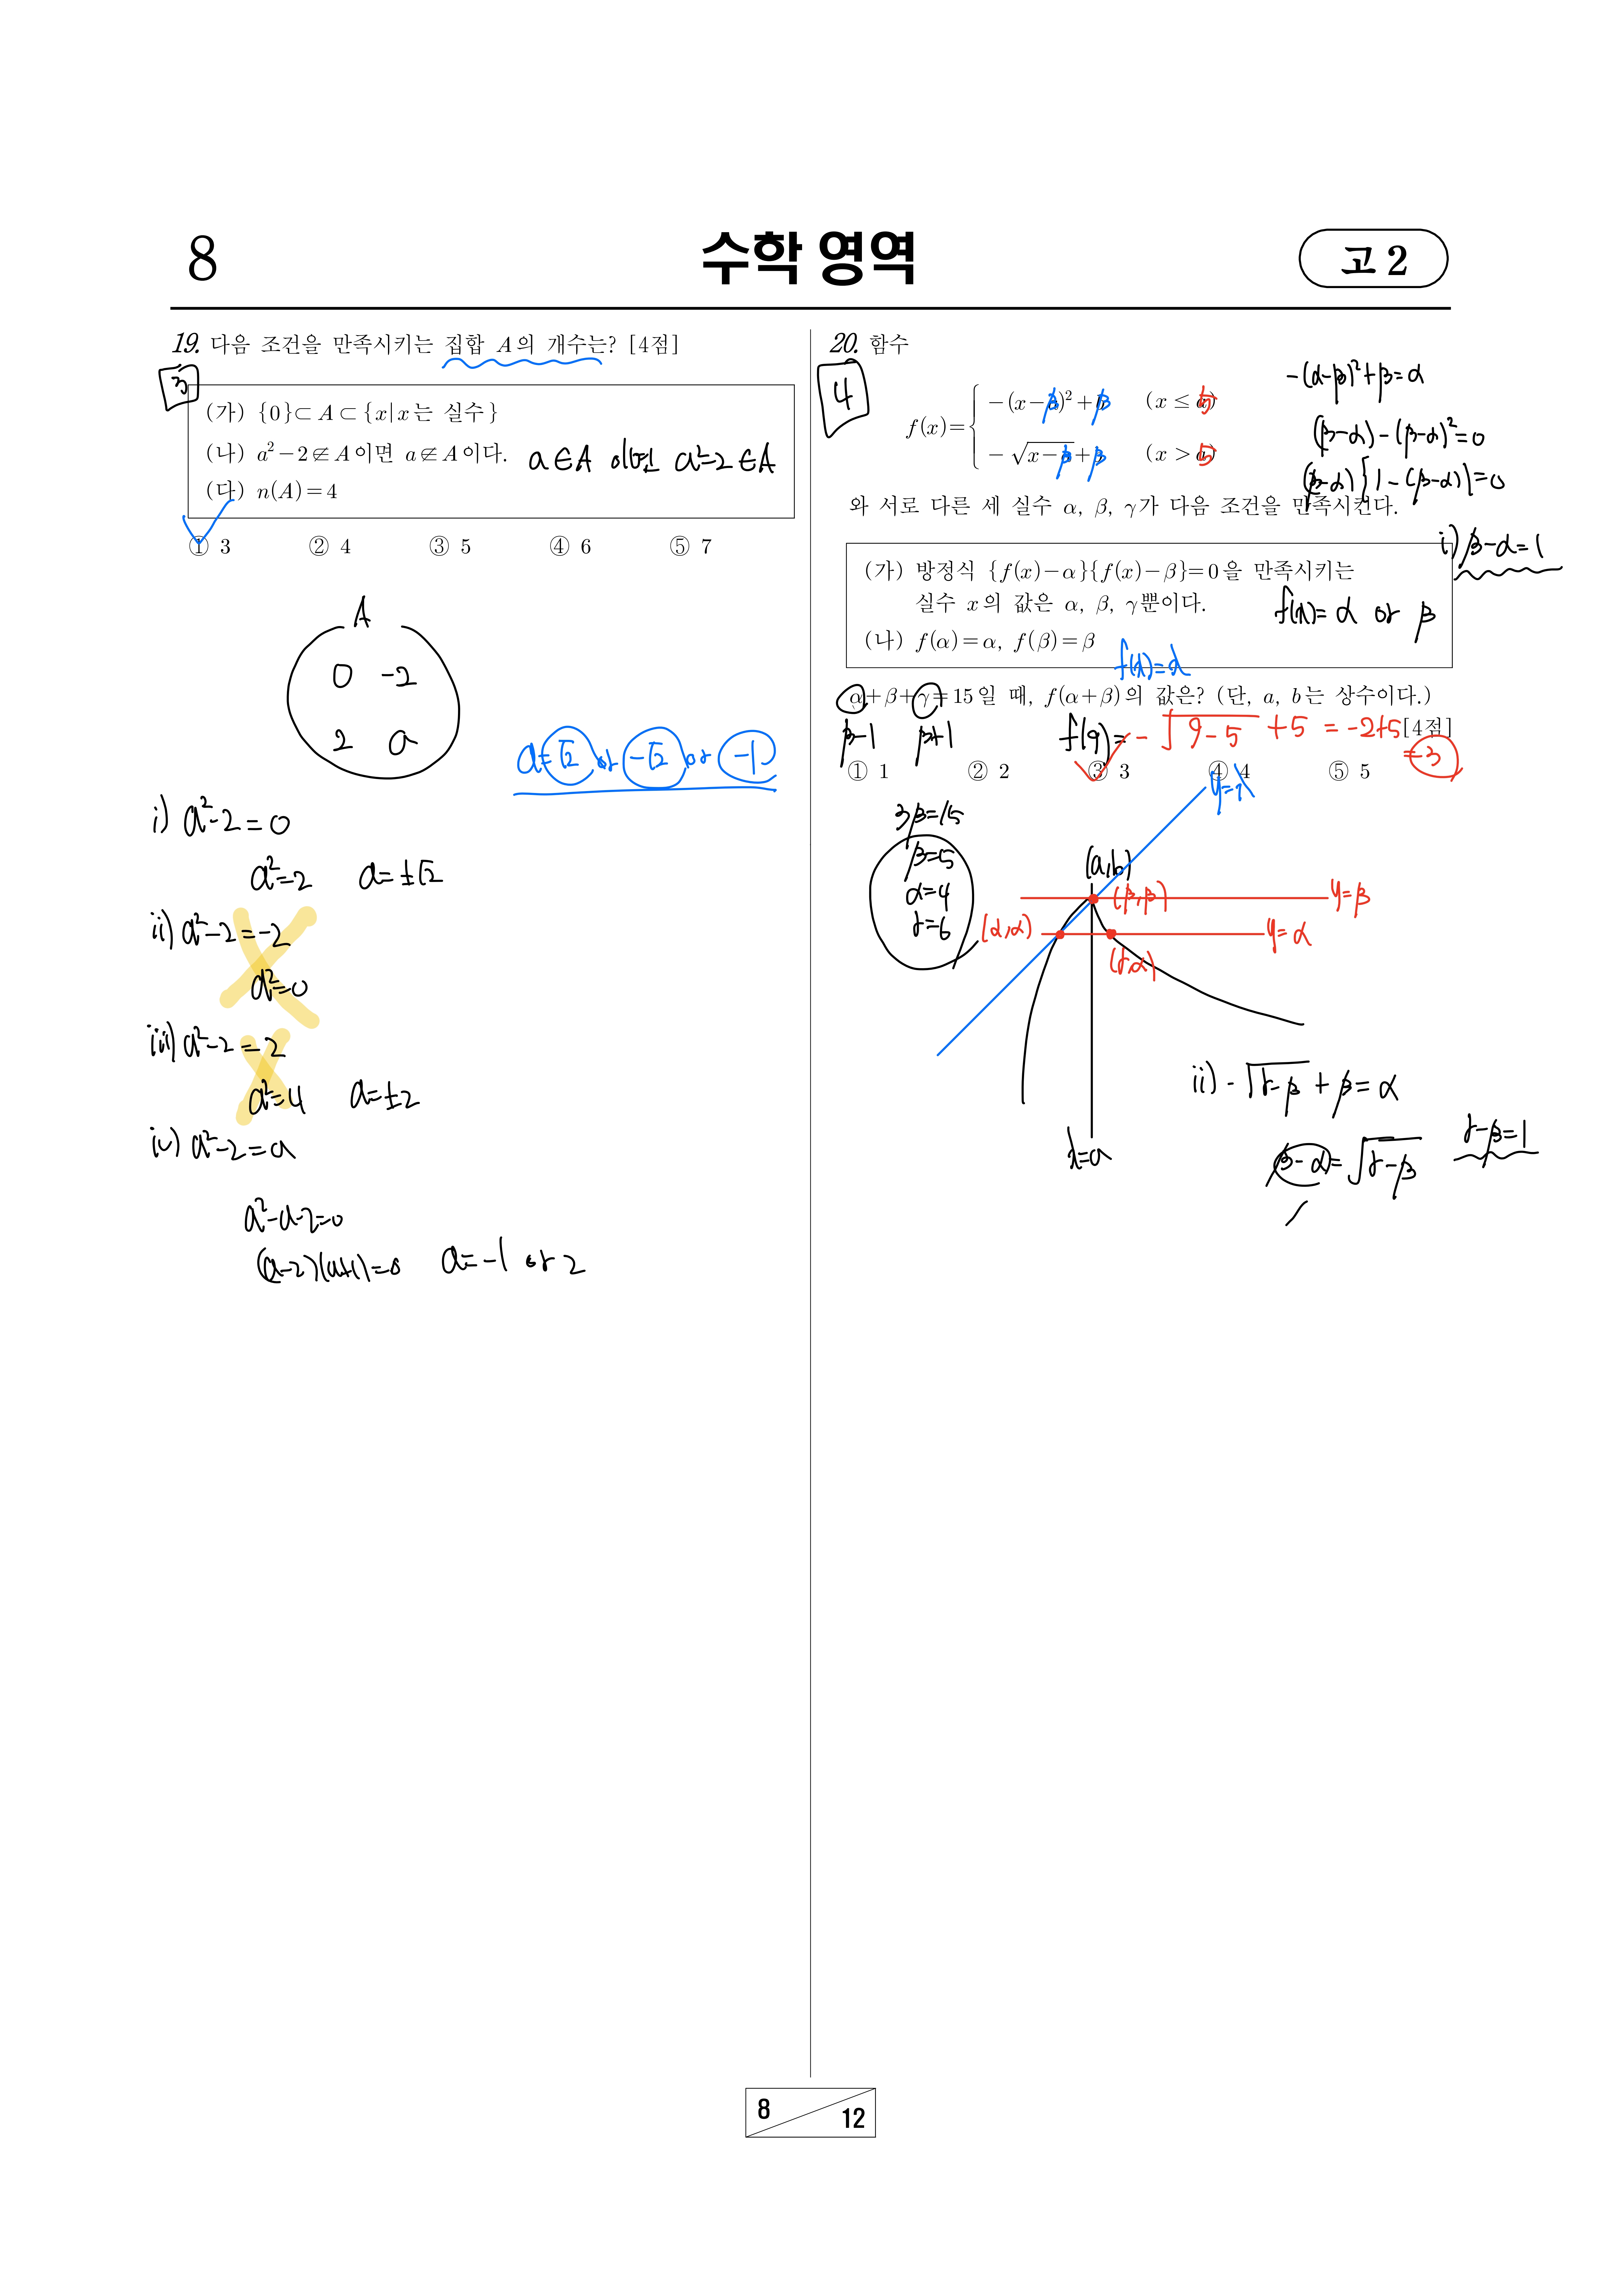 8
수학 영역
고 2
19. 다음 조건을 만족시키는 집합 A의 개수는? [4점]
3
(가) {0}⊂A⊂{x|x는 실수}
(나) a²−2∉A이면 a∉A이다. a∈A 이면 a²-2∈A
(다) n(A)=4
① 3 ② 4 ③ 5 ④ 6 ⑤ 7
A
0 -2
2 a
a=√2 or -√2 or -1
i) a²-2=0
a²=2 a=±√2
ii) a²-2=-2
a²=0
iii) a²-2=2
a²=4 a=±2
iv) a²-2=a
a²-a-2=0
(a-2)(a+1)=0 a=-1 or 2
20. 함수
4
f(x)=
−(x−β)²+β (x≤5)
−√(x−β)+β (x>5)
-(α-β)²+β=α
(β-α)-(β-α)²=0
(β-α){1-(β-α)}=0
i) β-α=1
와 서로 다른 세 실수 α, β, γ가 다음 조건을 만족시킨다.
(가) 방정식 {f(x)−α}{f(x)−β}=0을 만족시키는
실수 x의 값은 α, β, γ뿐이다.
f(x)= α or β
(나) f(α)=α, f(β)=β
f(x)=x
α+β+γ=15일 때, f(α+β)의 값은? (단, a, b는 상수이다.)
[4점]
β-1 β+1
f(9)= -√(9-5) +5 = -2+5
=3
① 1 ② 2 ③ 3 ④ 4 ⑤ 5
3β=15
β=5
α=4
γ=6
y=x
(a,b)
(β,β)
y=β
(α,α)
y=α
(γ,α)
x=a
ii) -√(γ-β)+β=α
β-α=√(γ-β)
γ-β=1
8
12